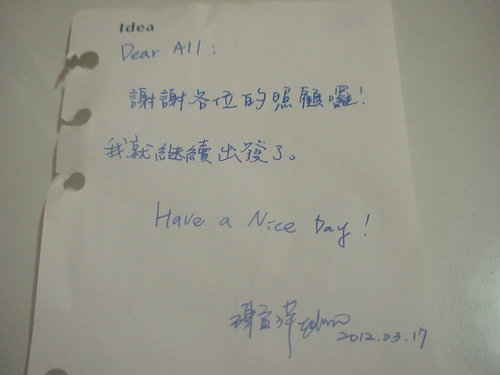 Idea
Dear All:
謝謝各位的照顧囉!
我就繼續出發了。
Have a Nice Day!
2012.03.17